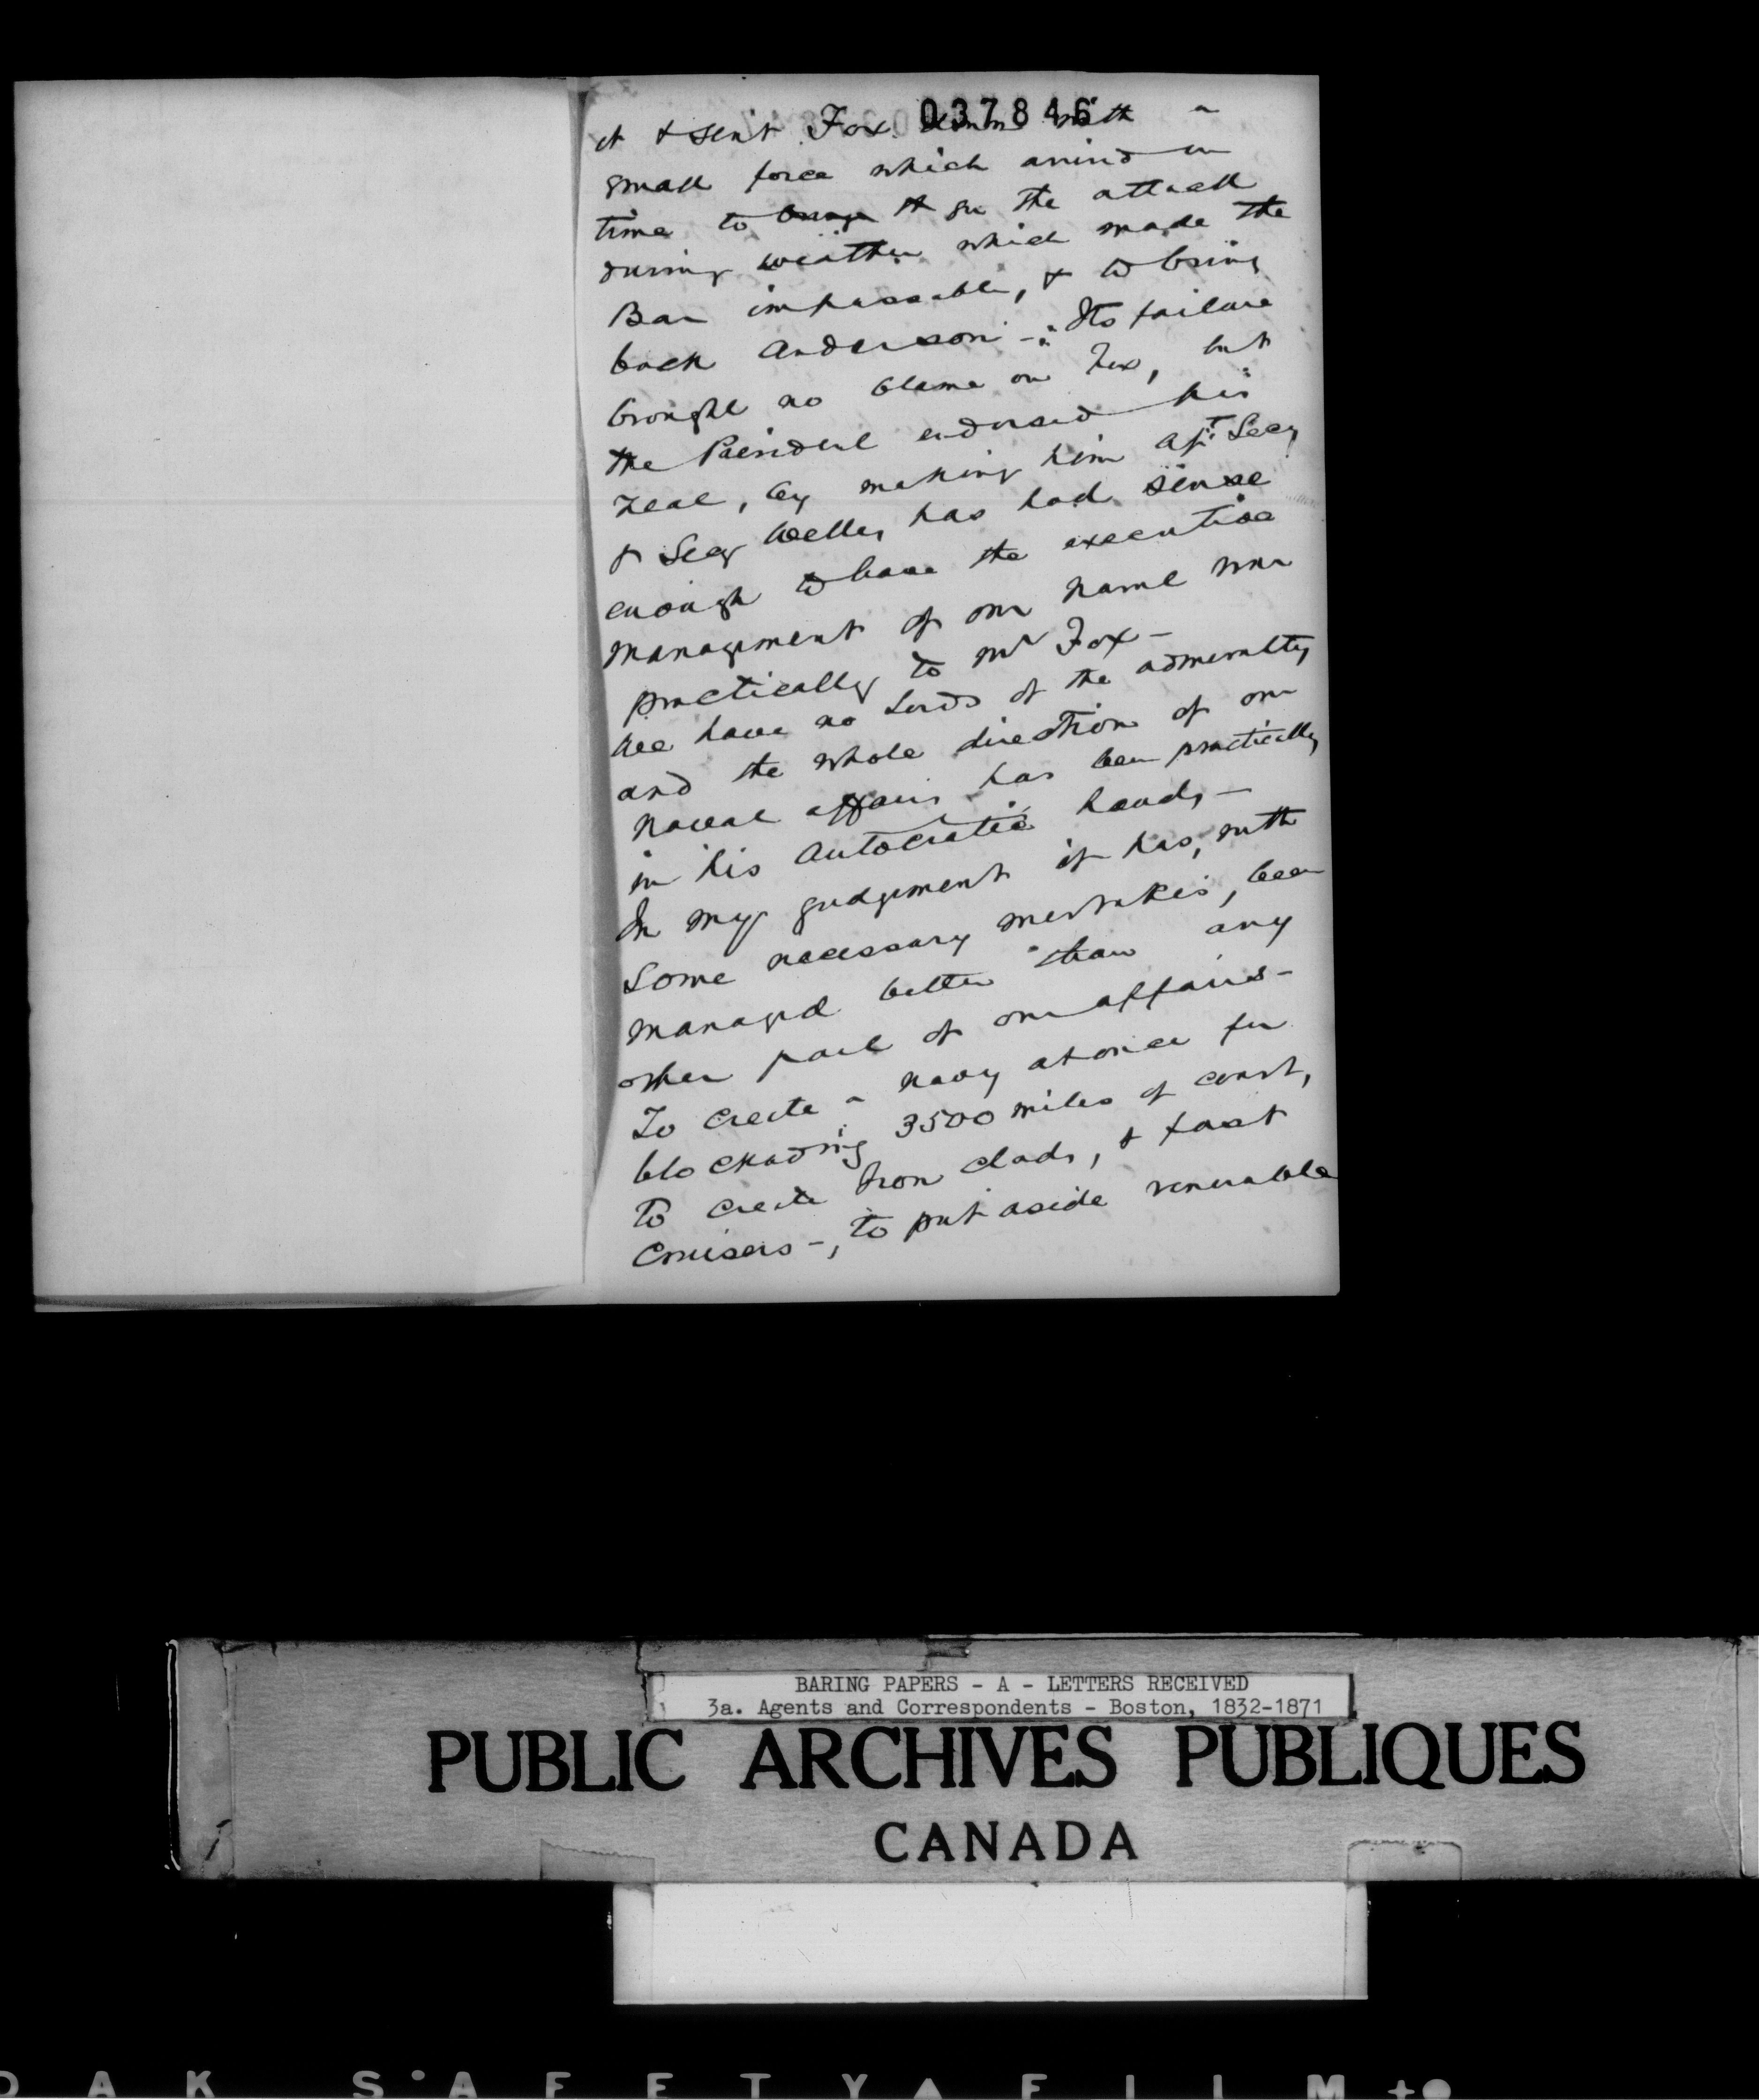 037846
it & sent Fox down with a
small force which arrived in
time to bringe it see the attack
during weather which made the
Bar impassable, & to bring
back Anderson -: Its failure
brought no blame on Fox, but
the President endorsed his
zeal, by making him Asst Secy
& Secy Welles has had sense
enough to leave the executive
management of our naval war
practically to Mr Fox -
We have no Lords of the admiralty
and the whole direction of our
naval affairs has been practically
in his Autocratic hands -
In my judgement it has, with
some necessary mistakes, been
managed better than any
other part of our affairs -
To create a navy at once for
blockading 3500 miles of coast,
to create Iron clads, & fast
Cruisers -, to put aside venerable
BARING PAPERS - A - LETTERS RECEIVED
3a. Agents and Correspondents - Boston, 1832-1871
PUBLIC ARCHIVES PUBLIQUES
CANADA
DAK S•AFETY▲FILM+●